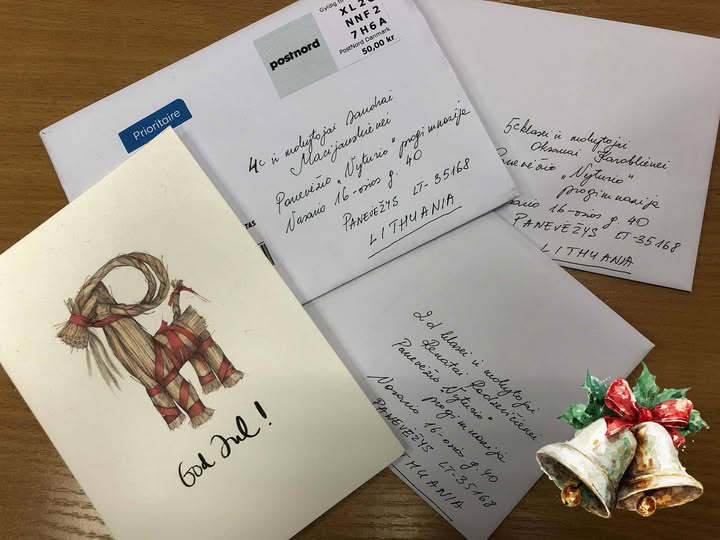 Gyldig til
XL20
NNF2
7H6A
PostNord Danmark
50,00 kr
postnord
Prioritaire
4c ir mokytojai Sandrai
Macijauskienei
Panevėžio „Vyturio" progimnazija
Vasario 16-osios g. 40
PANEVĖŽYS LT-35168
LITHUANIA
5c klasei ir mokytojai
Oksanai Karoblienei
Panevėžio „Vyturio"
progimnazija
Vasario 16-osios g. 40
PANEVĖŽYS LT-35168
LITHUANIA
2d klasei ir mokytojai
Renatai
Panevėžio „Vyturio"
progimnazija
Vasario 16-osios g. 40
PANEVĖŽYS LT-35168
LITHUANIA
God Jul!